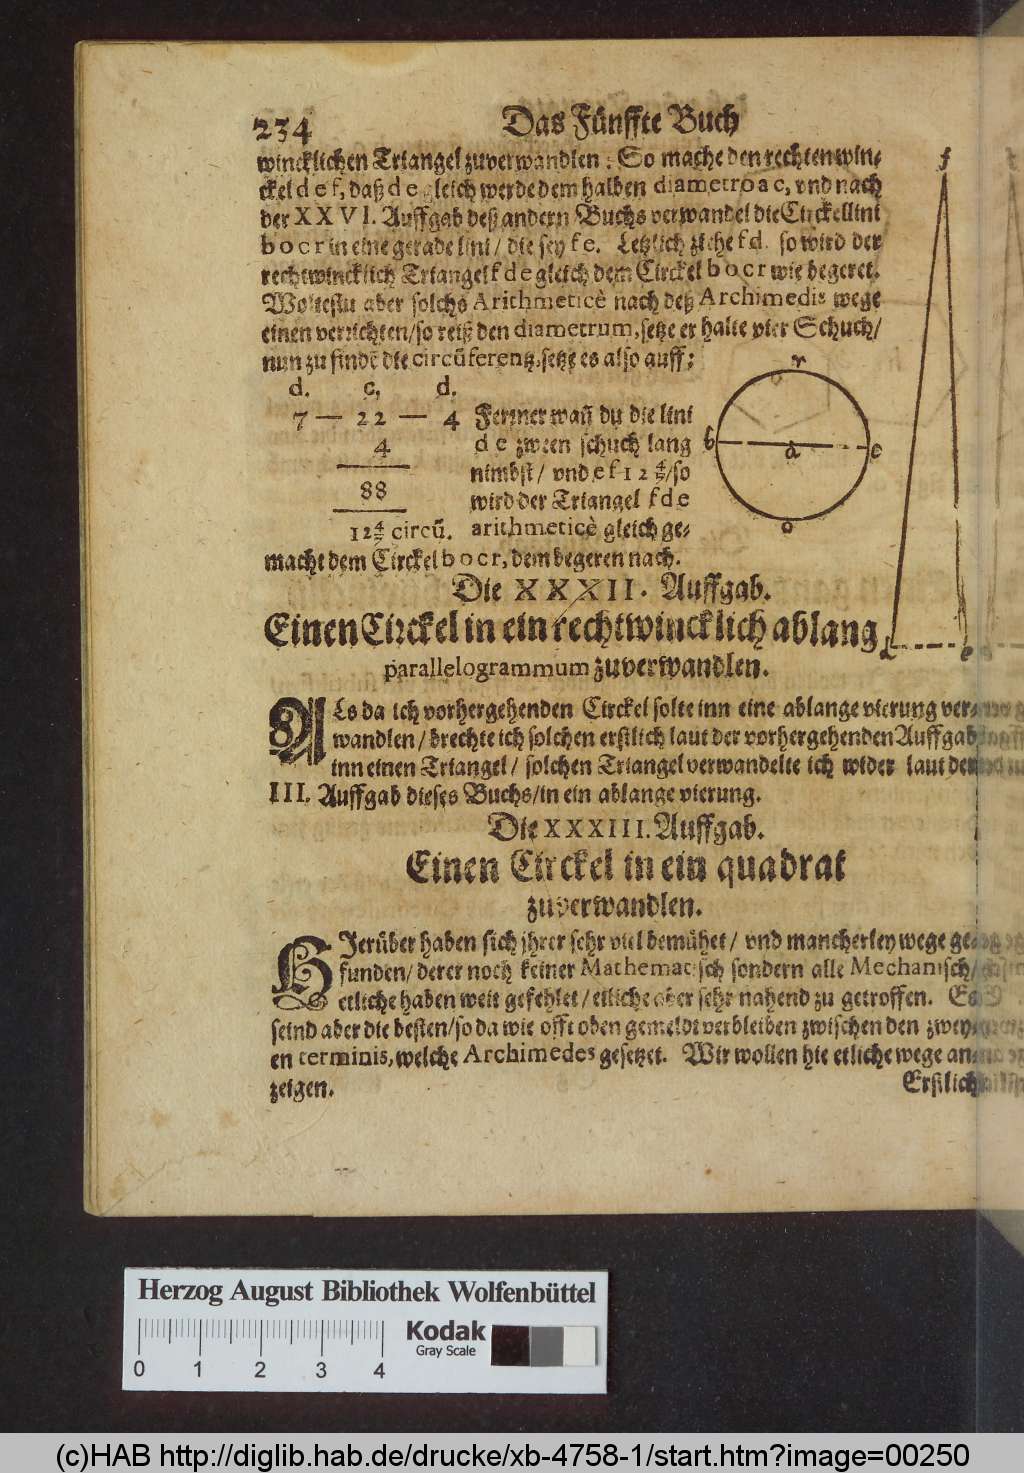 234 Das Fünffte Buch
wincklichen Triangel zuverwandlen: So mache den rechten win-
ckel d e f, daß d e gleich werde dem halben diametro a c, vnd nach
der XXVI. Auffgab deß andern Buchs verwandel die Circkellini
b o c r in eine gerade lini / die sey f e. Letzlich ziehe f d. so wird der
rechtwincklich Triangel f d e gleich dem Circkel b o c r wie begeret.
Woltestu aber solchs Arithmeticè nach deß Archimedis wege
einen verrichten / so reiß den diametrum, setze er halte vier Schuch /
nun zu findē die circūferentz, setze es also auff:
d. c, d.
7 — 22 — 4
4
88
12 4/7 circū.
Ferrner wañ du die lini
d e zween schuch lang
nimbst / vnd e f 12 4/7 / so
wird der Triangel f d e
arithmeticè gleich ge-
macht dem Circkel b o c r, dem begeren nach.
r
b a c
o
f
d e
Die XXXII. Auffgab.
Einen Circkel in ein rechtwincklich ablang
parallelogrammum zuverwandlen.
ALs da ich vorhergehenden Circkel solte inn eine ablange vierung ver-
wandlen / brechte ich solchen erstlich laut der vorhergehenden Auffgab
inn einen Triangel / solchen Triangel verwandelte ich wider laut der
III. Auffgab dieses Buchs / in ein ablange vierung.
Die XXXIII. Auffgab.
Einen Circkel in ein quadrat
zuverwandlen.
HIerüber haben sich jhrer sehr viel bemühet / vnd mancherley wege ge-
funden / derer noch keiner Mathematisch sondern alle Mechanisch /
etliche haben weit gefehlet / etliche aber sehr nahend zu getroffen. Es
seind aber die besten / so da wie offt oben gemeldt verbleiben zwischen den zwey-
en terminis, welche Archimedes gesetzet. Wir wollen hie etliche wege an-
zeigen.
Erstlich
Herzog August Bibliothek Wolfenbüttel
0 1 2 3 4
Kodak
Gray Scale
(c)HAB http://diglib.hab.de/drucke/xb-4758-1/start.htm?image=00250